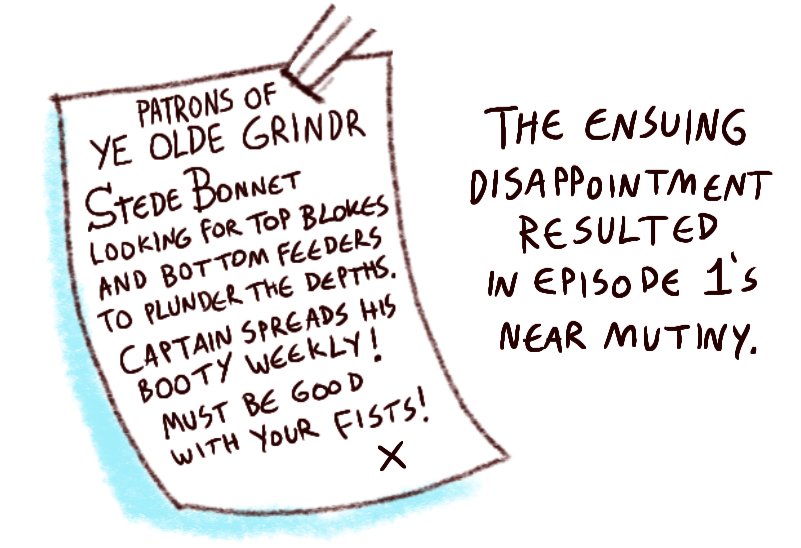 PATRONS OF
YE OLDE GRINDR
STEDE BONNET
LOOKING FOR TOP BLOKES
AND BOTTOM FEEDERS
TO PLUNDER THE DEPTHS.
CAPTAIN SPREADS HIS
BOOTY WEEKLY!
MUST BE GOOD
WITH YOUR FISTS!
X
THE ENSUING
DISAPPOINTMENT
RESULTED
IN EPISODE 1's
NEAR MUTINY.